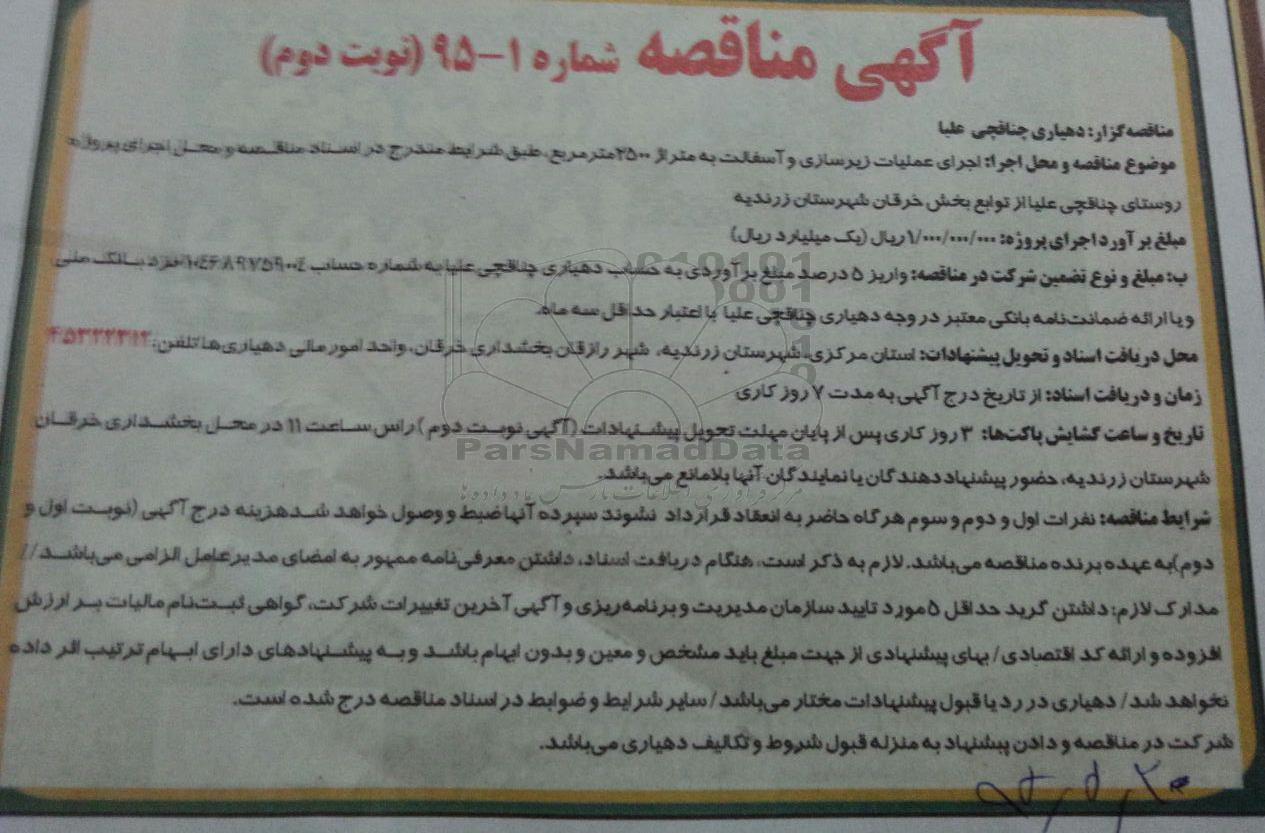 آگهی مناقصه شماره ۱-۹۵ (نوبت دوم)
مناقصه‌گزار: دهیاری چناقچی علیا
موضوع مناقصه و محل اجرا: اجرای عملیات زیرسازی و آسفالت به متراژ ۲۵۰۰مترمربع، طبق شرایط مندرج در اسناد مناقصه و محل اجرای پروژه
روستای چناقچی علیا از توابع بخش خرقان شهرستان زرندیه
مبلغ برآورد اجرای پروژه: ۱/۰۰۰/۰۰۰/۰۰۰ریال (یک میلیارد ریال)
ب: مبلغ و نوع تضمین شرکت در مناقصه: واریز ۵ درصد مبلغ برآوردی به حساب دهیاری چناقچی علیا به شماره حساب نزد بانک ملی
و یا ارائه ضمانت‌نامه بانکی معتبر در وجه دهیاری چناقچی علیا با اعتبار حداقل سه ماه.
محل دریافت اسناد و تحویل پیشنهادات: استان مرکزی، شهرستان زرندیه، شهر رازقان بخشداری خرقان، واحد امور مالی دهیاری‌ها تلفن: ۴۵۳۲۲۳۱۲
زمان و دریافت اسناد: از تاریخ درج آگهی به مدت ۷ روز کاری
تاریخ و ساعت گشایش پاکت‌ها: ۳ روز کاری پس از پایان مهلت تحویل پیشنهادات (آگهی نوبت دوم) راس ساعت ۱۱ در محل بخشداری خرقان
شهرستان زرندیه، حضور پیشنهاد دهندگان یا نمایندگان آنها بلامانع می‌باشد.
شرایط مناقصه: نفرات اول و دوم و سوم هرگاه حاضر به انعقاد قرارداد نشوند سپرده آنها ضبط و وصول خواهد شدهزینه درج آگهی (نوبت اول و
دوم)به عهده برنده مناقصه می‌باشد. لازم به ذکر است، هنگام دریافت اسناد، داشتن معرفی‌نامه ممهور به امضای مدیرعامل الزامی می‌باشد//
مدارک لازم: داشتن گرید حداقل ۵ مورد تایید سازمان مدیریت و برنامه‌ریزی و آگهی آخرین تغییرات شرکت، گواهی ثبت‌نام مالیات بر ارزش
افزوده و ارائه کد اقتصادی/ بهای پیشنهادی از جهت مبلغ باید مشخص و معین و بدون ابهام باشد و به پیشنهادهای دارای ابهام ترتیب اثر داده
نخواهد شد/ دهیاری در رد یا قبول پیشنهادات مختار می‌باشد/ سایر شرایط و ضوابط در اسناد مناقصه درج شده است.
شرکت در مناقصه و دادن پیشنهاد به منزله قبول شروط و تکالیف دهیاری می‌باشد.
ParsNamadData